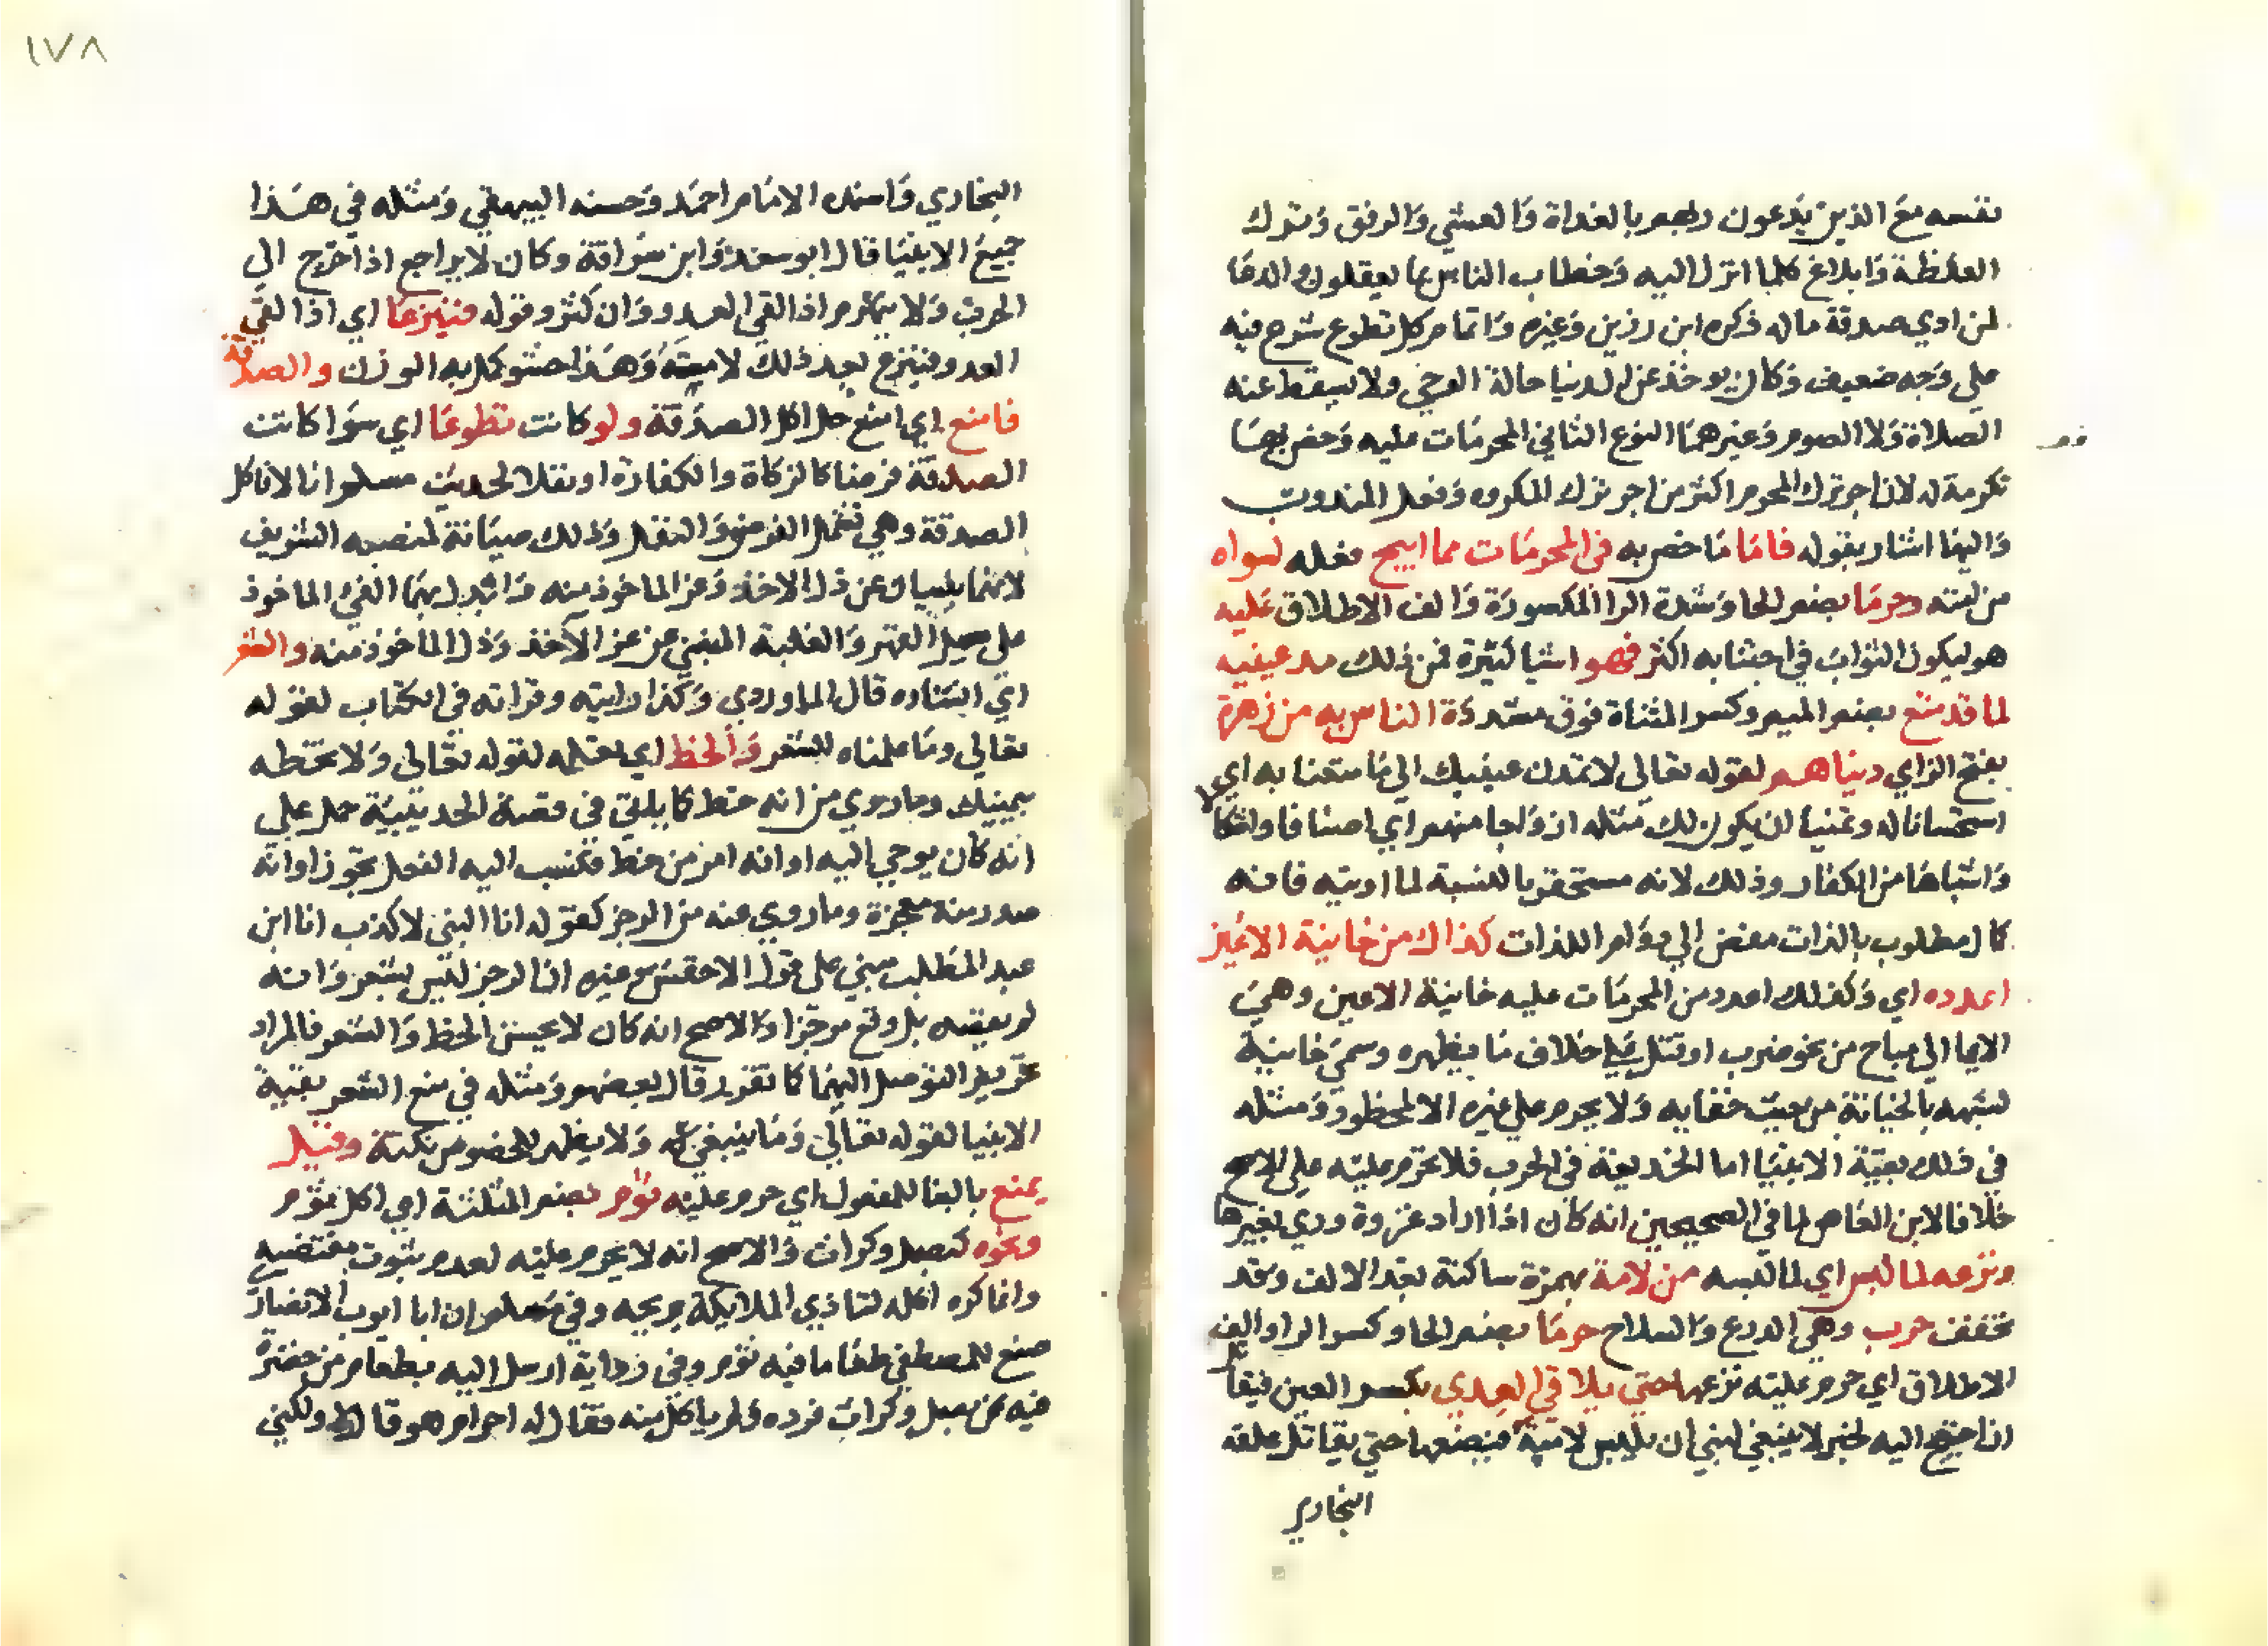 نفسه مع الذين يدعون ربهم بالغداة والعشي والرفق وترك
الغلظة وابلاغ كلما انزل اليه وخطاب الناس بما يعقلون والدعا
لمن ادي صدقة ماله ذكره ابن رزين وغيره واتمام كل تطوع شرع فيه
علي وجه ضعيف وكان يوخذ عن الدنيا حالة الوحي ولا يسقط عنه
الصلاة ولا الصوم وغيرهما النوع الثاني المحرمات عليه وخص بها
تكرمة له لان اجر ترك المحرم اكثر من اجر ترك المكروه وفعل المندوب
واليها اشار بقوله فاما ما خص به في المحرمات مما ابيح فعله لسواه
من امته وحرما بضم الحا وشدة الرا المكسورة والف الاطلاق عليه
هو ليكون الثواب في اجتنابه اكثر فهو اشيا كثيرة فمن ذلك مد عينيه
لما قد متع بضم الميم وكسر المثناة فوق مشددة الناس به من زهرة
بفتح الزاي دنياهم لقوله تعالي لا تمدن عينيك الي ما متعنا به اي
استحسانا له وتمنيا ان يكون لك مثله ازواجا منهم اي اصنافا واشكالا
واشباها من الكفار وذلك لانه مستحقر بالنسبة لما اوتيه فانه
كمال مطلوب بالذات مفض الي دوام اللذات كذاك من خاينة الاعين
اعدده اي وكذلك اعدد من المحرمات عليه خاينة الاعين وهي
الايما الي مباح من نحو ضرب او قتل علي خلاف ما يظهره وسمي خاينة
لشبهه بالخيانة من حيث خفايه ولا يحرم علي غيره الا لمحظور ومثله
في ذلك بقية الانبيا اما الخديعة في الحرب فلا تحرم عليه علي الاصح
خلافا لابن القاص لما في الصحيحين انه كان اذا اراد غزوة وري بغيرها
ونزعه لما لبس اي لما لبسه من لامة بهمزة ساكنة بعد الالف وقد
تخفف حرب وهي الدرع والسلاح حرما بضم الحا وكسر الرا والف
الاطلاق اي حرم عليه نزعها حتي يلاقي العدي بكسر العين فيقاتل
ان احتيج اليه لخبر لا ينبغي لنبي ان يلبس لامته فيضعها حتي يقاتل علقه
البخاري
١٧٨
البخاري واسنده الامام احمد وحسنه البيهقي ومثله في هذا
جميع الانبيا قال ابو سعد وابن سراقة وكان لا يراجع اذا خرج الي
الحرب ولا ينهزم اذا لقي العدو وان كثر وقوله فينزعا اي اذا لقي
العدو فينزع بعد ذلك لامته وهذا حشو كمل به الوزن والصدقة
فامنع اي امنع حل اكل الصدقة ولو كانت تطوعا اي سوا كانت
الصدقة فرضا كالزكاة والكفارة او نفلا لحديث مسلم انا لا ناكل
الصدقة وهي تشمل الفرض والنفل وذلك صيانة لمنصبه الشريف
لانها ينبيان عن ذل الاخذ وعز الماخوذ منه وابدل بها الفي الماخوذ
علي سبيل القهر والغلبة المنبي عن عز الآخذ وذل الماخوذ منه والشعر
اي انشاده قال الماوردي وكذا روايته وقراته في الكتاب لقوله
تعالي وما علمناه الشعر والخط اي تعلمه لقوله تعالي ولا تخطه
بيمينك وما روي من انه خط كما ياتي في قصة الحديبية حمل علي
انه كان يوحي اليه او انه امر من خط فنسب اليه الفعل تجوزا او انه
صدر منه معجزة وما روي عنه من الرجز كقوله انا النبي لا كذب انا ابن
عبد المطلب مبني علي قول الاخفش وغيره ان الرجز ليس بشعر وانه
لم يقصده بل وقع مرجزا والاصح انه كان لا يحسن الخط والشعر فالمراد
تحريم التوصل اليهما كما تقرر قال بعضهم ومثله في منع الشعر بقية
الانبيا لقوله تعالي وما ينبغي له ولا يظهر للخصوص نكتة وقيل
يمنع بالبنا للمفعول اي حرم عليه ثوم بضم المثلثة اي اكل ثوم
ونحوه كبصل وكراث والاصح انه لا يحرم عليه لعدم ثبوت مقتضيه
وانما كره اكله لتاذي الملايكة بريحه وفي مسلم ان ابا ايوب الانصاري
صنع للمصطفي طعاما فيه ثوم وفي رواية ارسل اليه بطعام من خضرة
فيه من بصل وكراث فرده ولم ياكل منه فقال له احرام هو قال لا ولكني